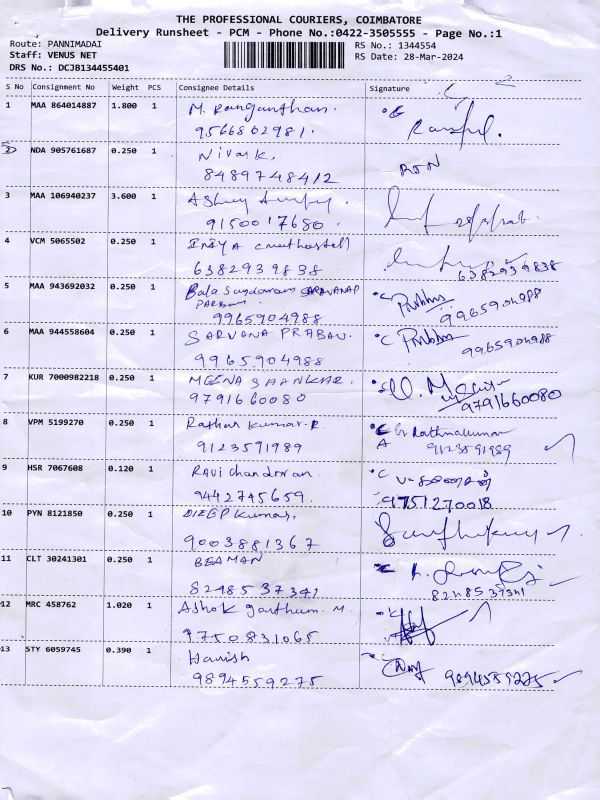 THE PROFESSIONAL COURIERS, COIMBATORE
Delivery Runsheet - PCM - Phone No.:0422-3505555 - Page No.:1
Route: PANNIMADAI
RS No.: 1344554
Staff: VENUS NET
RS Date: 28-Mar-2024
DRS No.: DCJB134455401
S No Consignment No Weight PCS Consignee Details Signature
1 MAA 864014887 1.800 1 M. Ranganthan.
9566802981.
2 NDA 905761687 0.250 1 Nivas K.
8489748412
3 MAA 106940237 3.600 1
9150017680.
4 VCM 5065502 0.250 1 INDYA
6382939838 6382939838
5 MAA 943692032 0.250 1 Bala Sundaram SARAVANAP
9965904988 9965904988
6 MAA 944558604 0.250 1 SARVANA PRABAU.
9965904988 9965904988
7 KUR 7000982218 0.250 1 MEENA SHANKAR.
9791660080 9791660080
8 VPM 5199270 0.250 1 Rathna Kumar.R G Rathnakumar
9123591989 9123591989
9 HSR 7067608 0.120 1 RAVI chandran.
9442745659. 9751270018
10 PYN 8121850 0.250 1 DILEEP Kumar.
9003881367
11 CLT 30241301 0.250 1 BEAMAN
8248537341 8248537341
12 MRC 458762 1.020 1 Ashok gautham. M
9750831065
13 STY 6059745 0.390 1 Harish
9894559275 9894559275